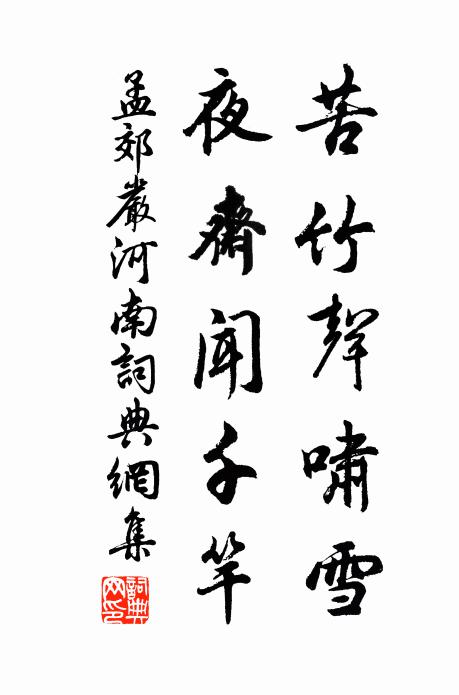 苦竹聲嘯雪
夜齋聞千竿
孟郊嚴河南詞典網集
詞典网印